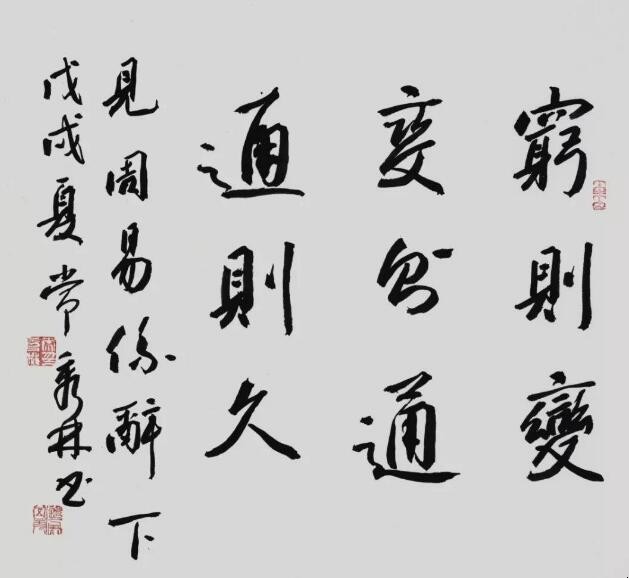 窮則變
变则通
通則久
見周易係辭下
戊戌夏常秀林书